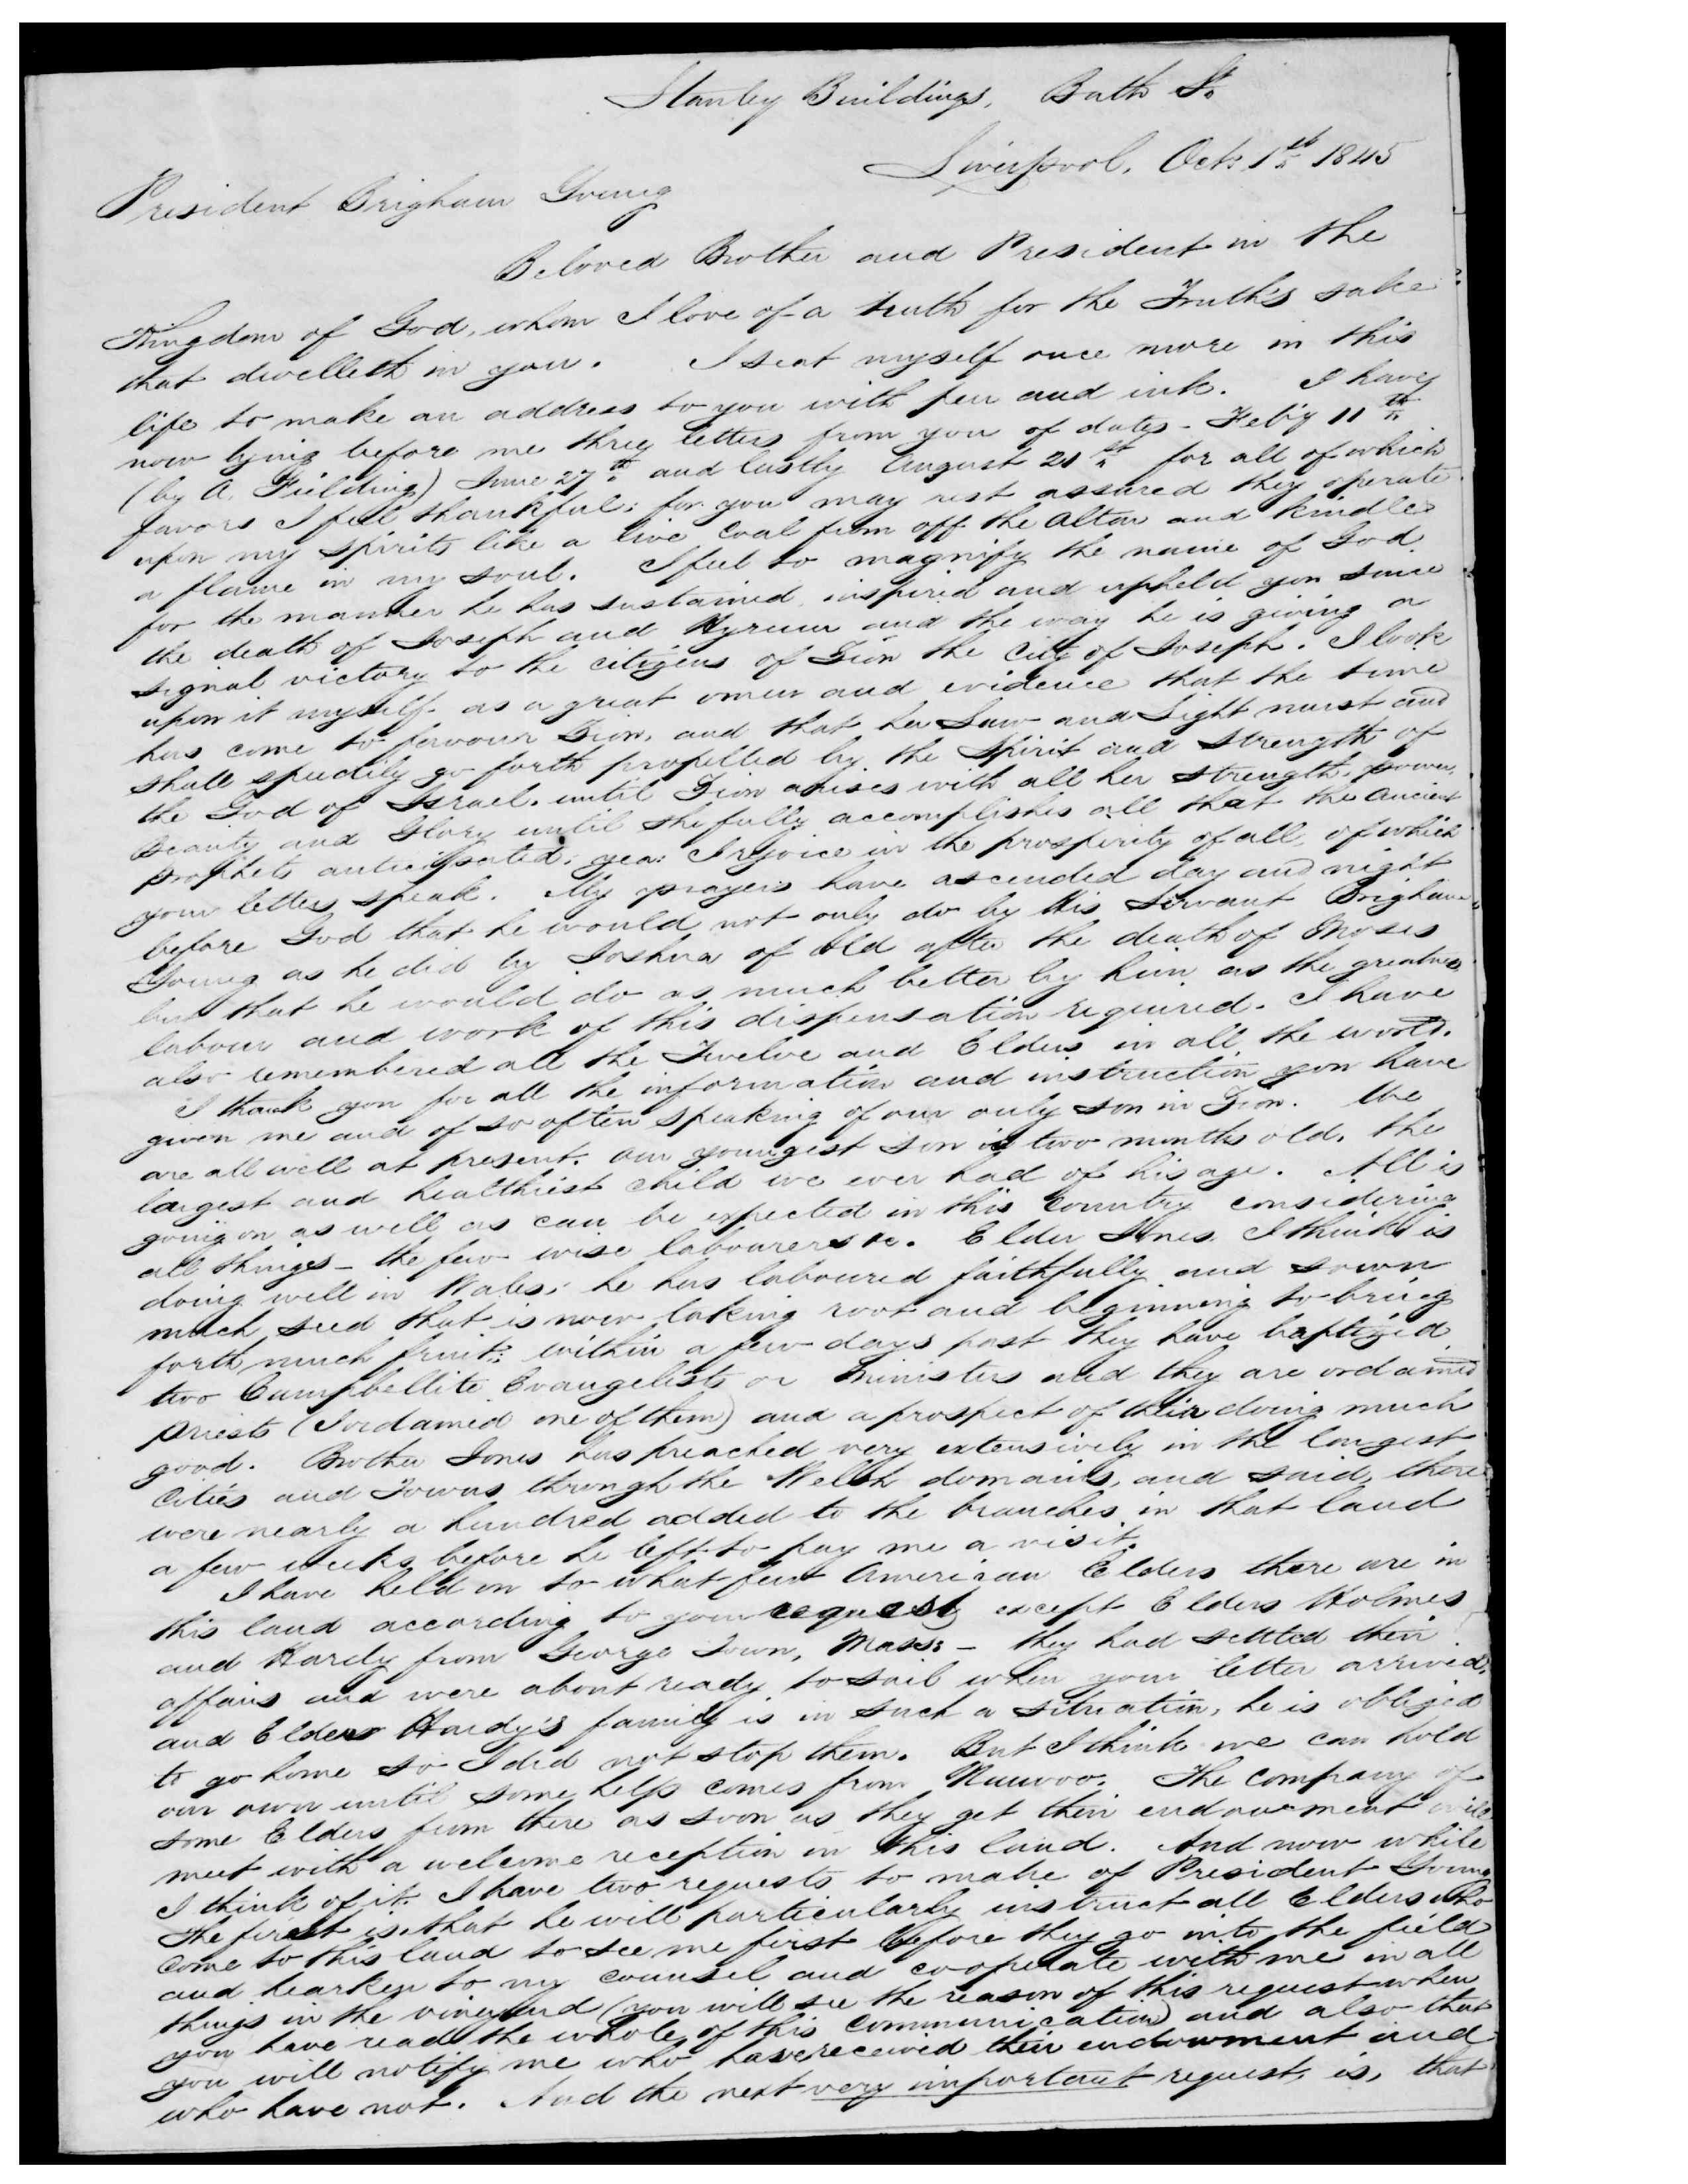 Stanley Buildings, Bath St.
Liverpool, Oct: 1st 1845
President Brigham Young
Beloved Brother and President in the
Kingdom of God, whom I love of a truth for the Truth's sake
that dwelleth in you. I seat myself once more in this
life to make an address to you with pen and ink. I have
now lying before me three letters from you of dates - Feb'y 11th
(by A. Fielding) June 27th and lastly August 21st for all of which
favors I feel thankful; for you may rest assured they operate
upon my spirits like a live coal from off the Altar and kindles
a flame in my soul. I feel to magnify the name of God
for the manner he has sustained, inspired and upheld you since
the death of Joseph and Hyrum and the way he is giving a
signal victory to the citizens of Zion the City of Joseph. I look
upon it myself as a great omen and evidence that the time
has come to favour Zion, and that her Law and Light must and
shall speedily go forth propelled by the Spirit and Strength of
the God of Israel, until Zion arises with all her strength, power,
Beauty and Glory until she fully accomplishes all that the ancient
prophets anticipated; yea: I rejoice in the prosperity of all, of which
your letters speak. My prayers have ascended day and night
before God that he would not only do by His Servant Brigham
Young as he did by Joshua of old after the death of Moses
but that he would do as much better by him, as the greatness,
labour and work of this dispensation required. I have
also remembered all the Twelve and Elders in all the world.
I thank you for all the information and instruction you have
given me and of so often speaking of our only son in Zion. We
are all well at present: our youngest son is two months old, the
largest and healthiest child we ever had of his age. All is
going on as well as can be expected in this Country considering
all things - the few wise labourers &c. Elder Jones I think is
doing well in Wales; he has laboured faithfully and sown
much seed that is now taking root and beginning to bring
forth much fruit; within a few days past they have baptized
two Campbellite Evangelists or Ministers and they are ordained
Priests (I ordained one of them) and a prospect of their doing much
good. Brother Jones has preached very extensively in the longest
Cities and Towns through the Welsh domains, and said, there
were nearly a hundred added to the branches in that land
a few weeks before he left to pay me a visit.
I have held on to what few American Elders there are in
this land according to your request, except Elders Holmes
and Hardy from George Town, Mass: - they had settled their
affairs and were about ready to sail when your letter arrived,
and Elder Hardy's family is in such a situation, he is obliged
to go home so I did not stop them. But I think we can hold
our own until some help comes from Nauvoo. The company of
some Elders from there as soon as they get their endowment will
meet with a welcome reception in this land. And now while
I think of it: I have two requests to make of President Young
The first is, that he will particularly instruct all Elders who
come to this land to see me first before they go into the field
and hearken to my counsel and cooperate with me in all
things in the vineyard (you will see the reason of this request when
you have read the whole of this communication) and also that
you will notify me who have received their endowment and
who have not. And the next very important request, is, that